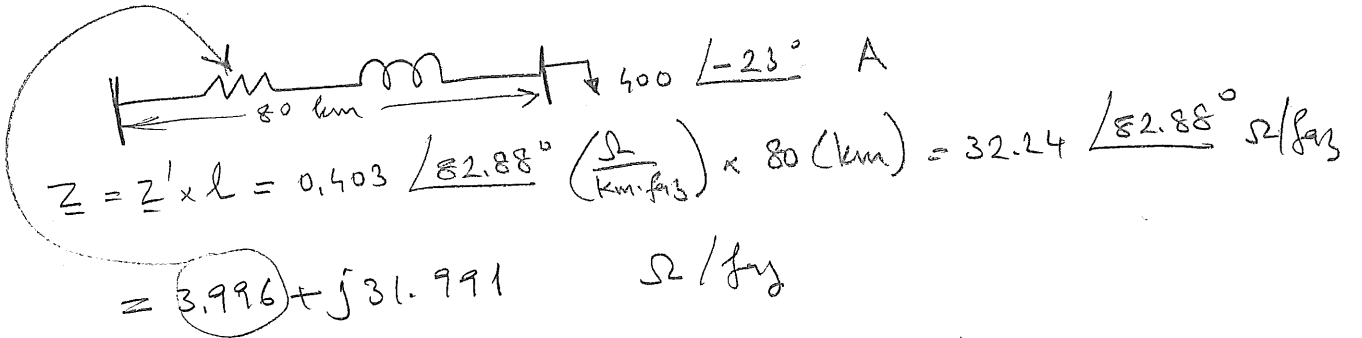 400 ∠-23° A
80 km
Z = Z' x l = 0,403 ∠82.88° (Ω/km.faz) x 80 (km) = 32.24 ∠82.88° Ω/faz
= 3.996 + j31.991 Ω/faz